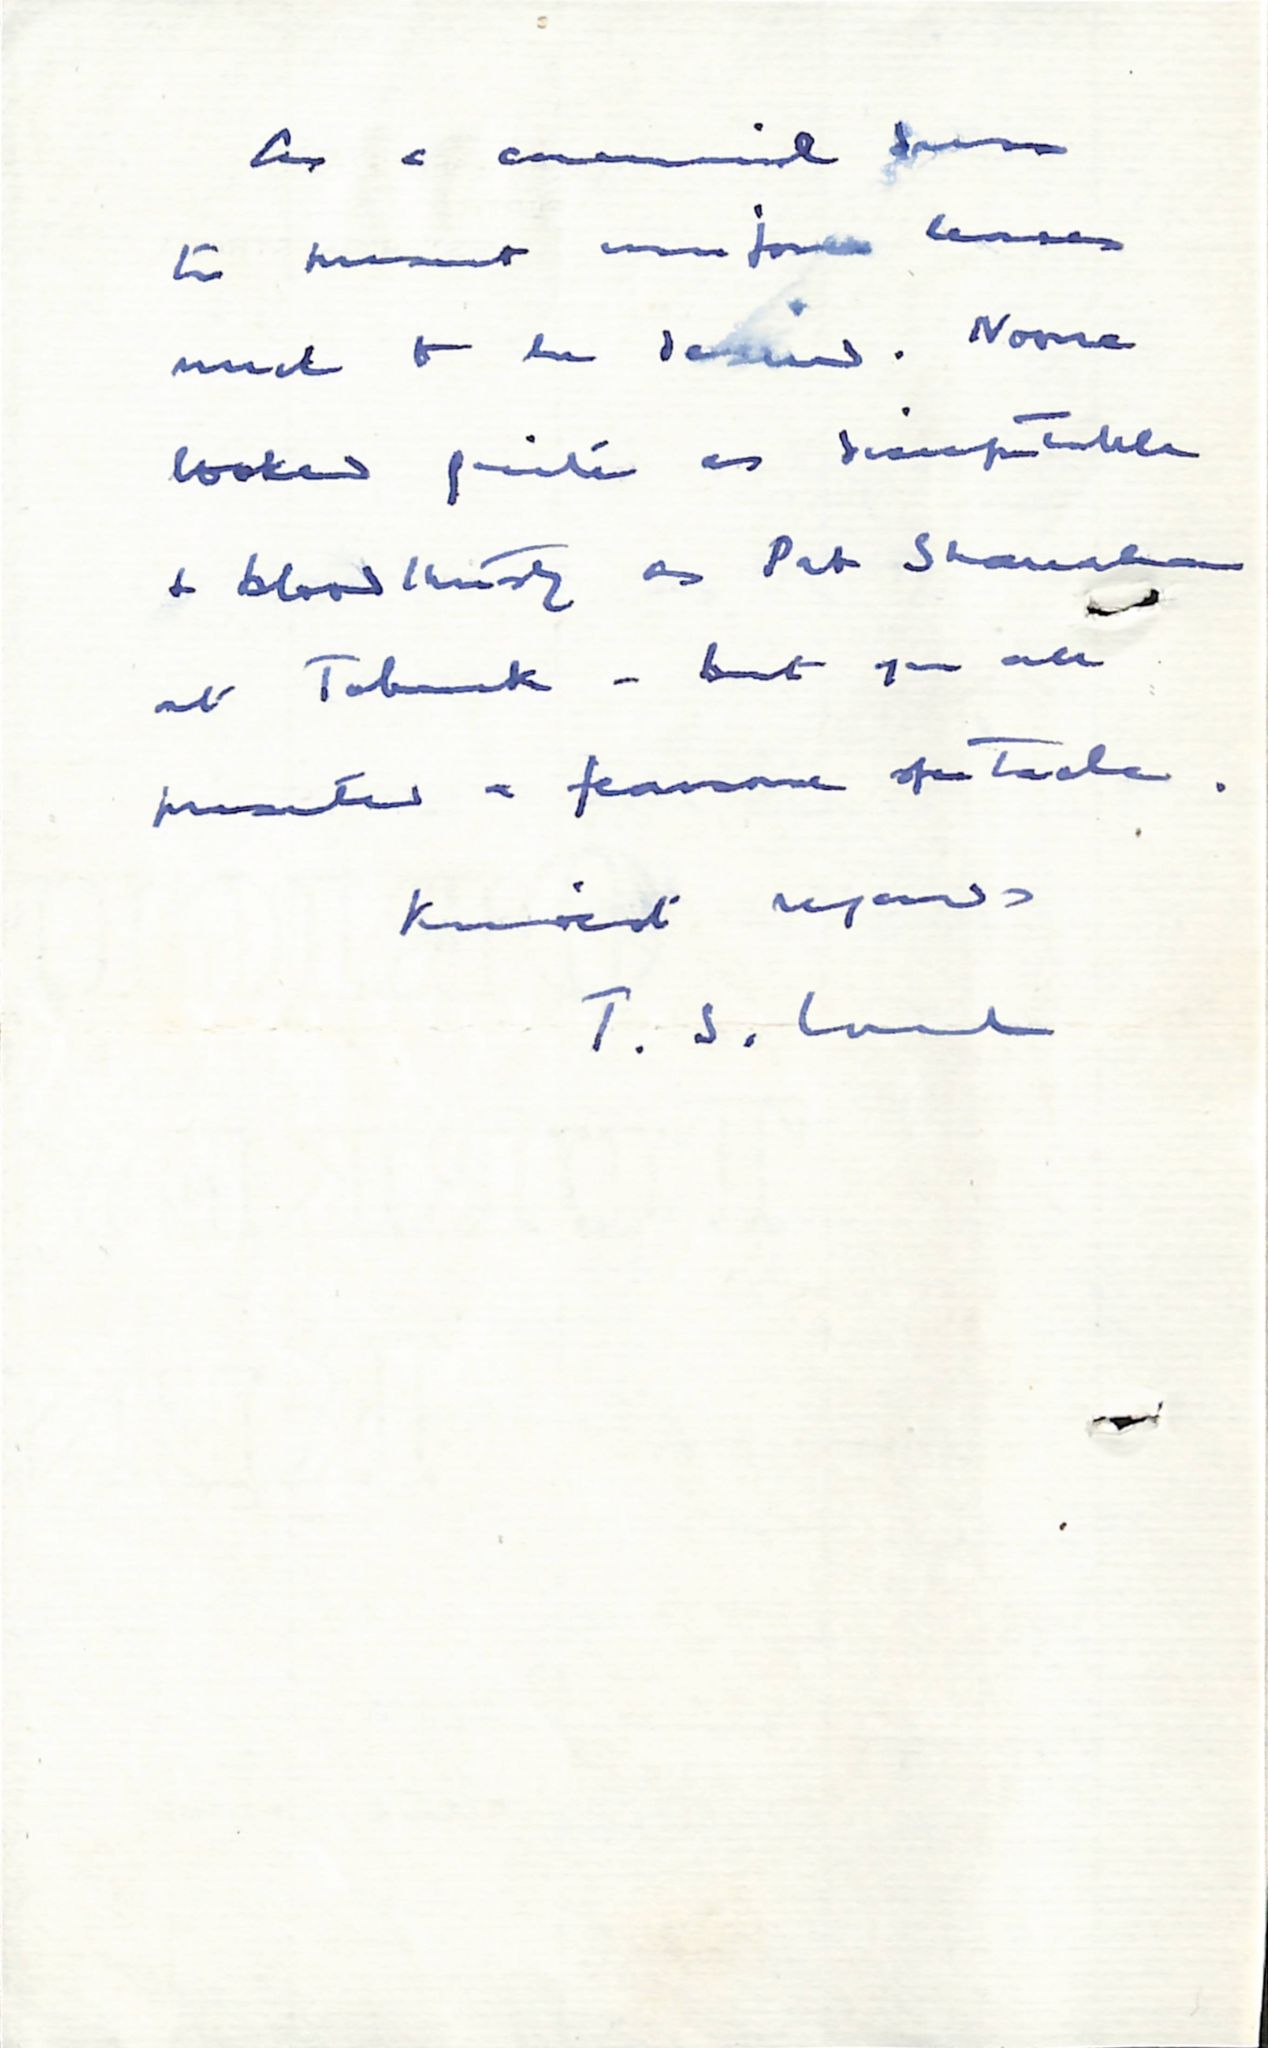 As a ceremonial dress
the present uniform leaves
much to be desired. Noone
looked quite as disreputable
& bloodthirsty as Pat Shanahan
at Tobruk - but you all
presented a fearsome spectacle.
Kindest regards
T. S. Louch